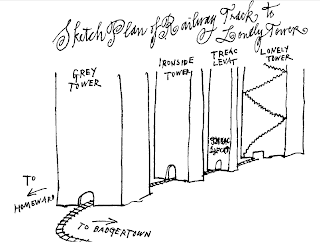 Sketch Plan of Railway Track to
Lonely Tower
GREY
TOWER
IRONSIDE
TOWER
TREAC
LEVAT
LONELY
TOWER
TO
HOMEWARD
TO BADGERTOWN